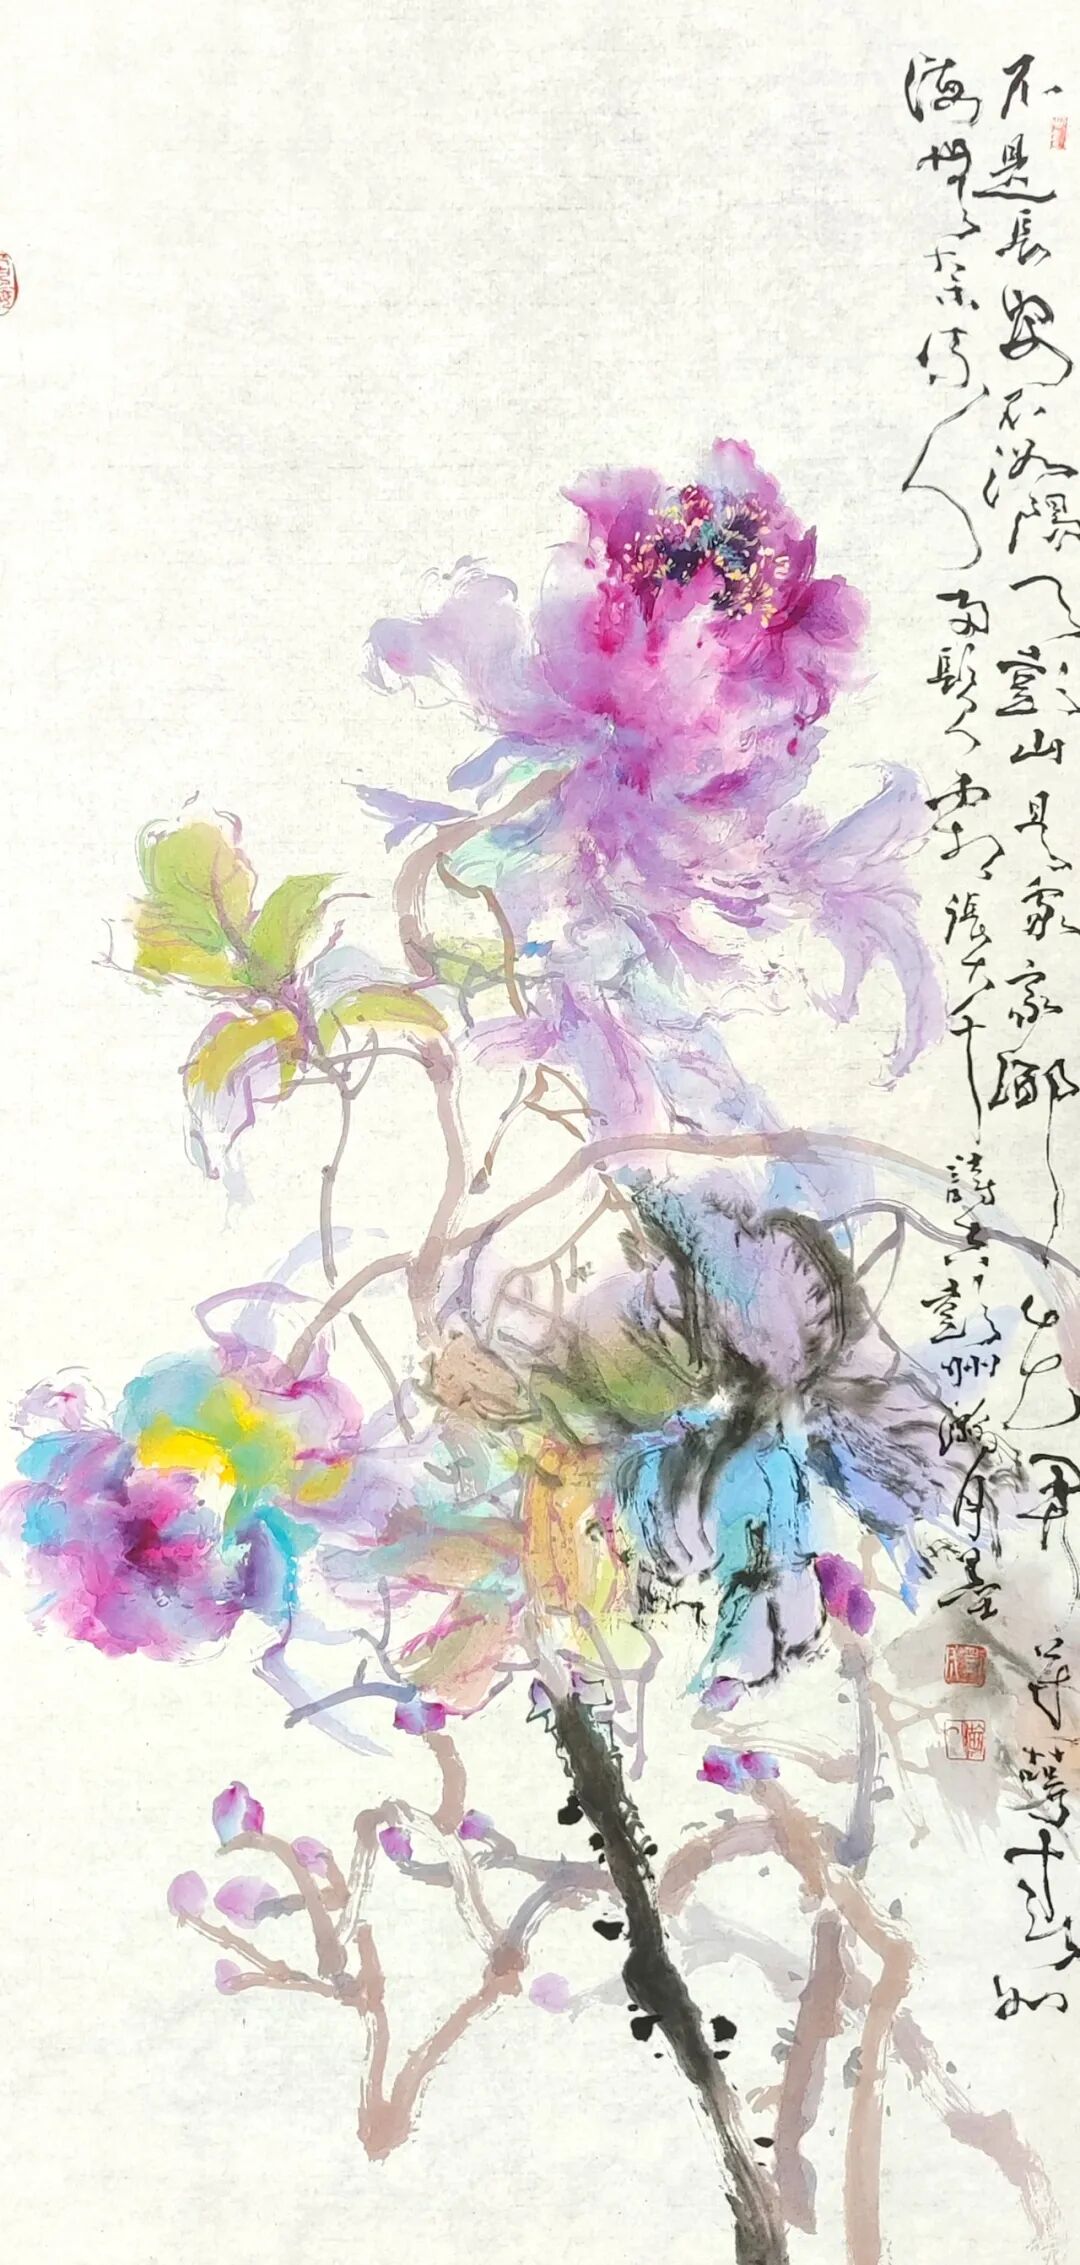 不是長安不洛陽天彭山是我家鄉花開萬萼春如
海無奈流人兩鬢霜張大千詩于彭州瀚月墨